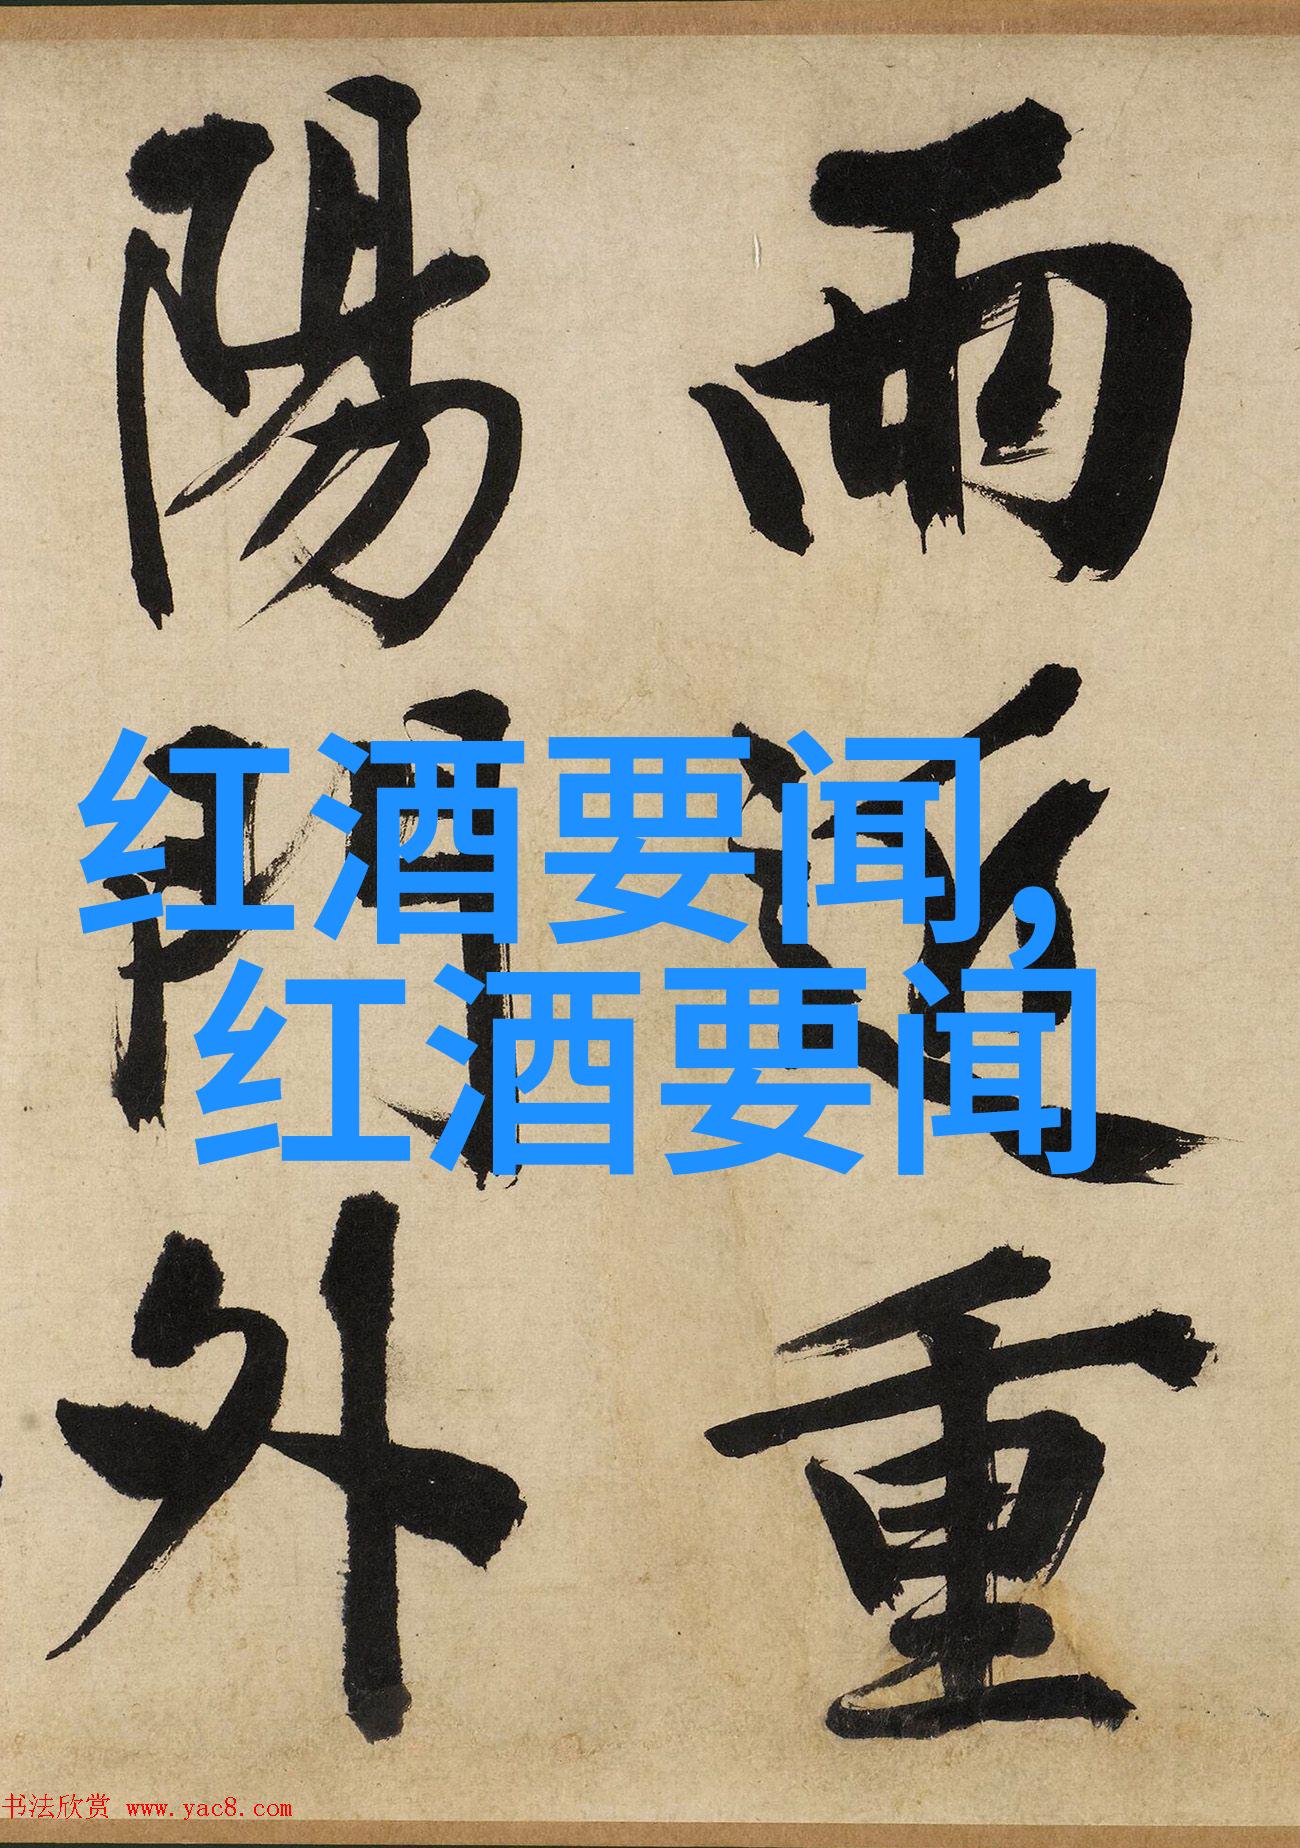 雨近重
陽門外
红酒要闻,
红酒要闻
书法欣赏 www.yac8.com